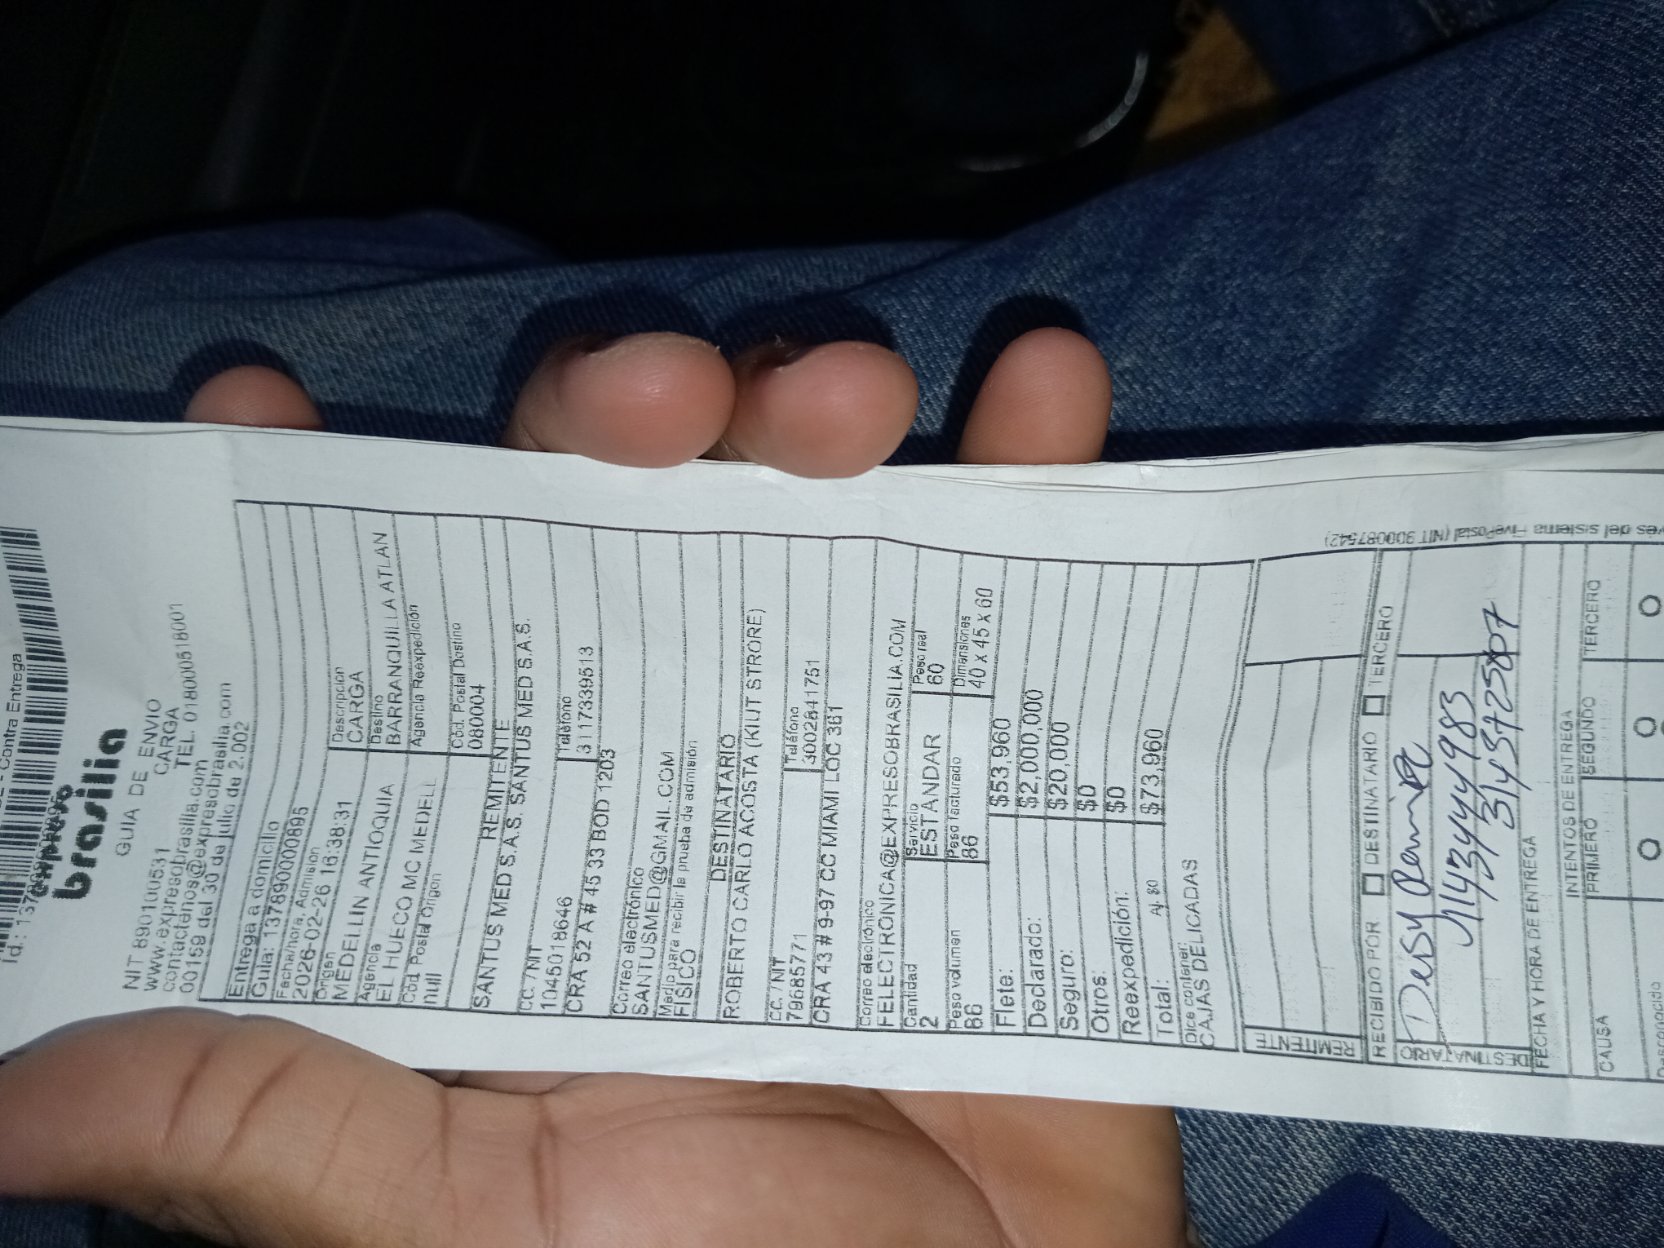 - Contra Entrega
expreso
brasilia
GUIA DE ENVIO
NIT 8901005​31 CARGA
www.expresobrasilia.com TEL. 018000518001
contactenos@expresobrasilia.com
00159 del 30 de julio de 2.002
Entrega a domicilio
Guia: 1378900000895
Fecha/hora, Admision
2026-02-26 16:38:31
Origen Descripcion
MEDELLIN ANTIOQUIA CARGA
Agencia Destino
EL HUECO MC MEDELL BARRANQUILLA ATLAN
Cód. Postal Origen Agencia Reexpedición
null
Cód. Postal Destino
080004
REMITENTE
SANTUS MED S.A.S. SANTUS MED S.A.S.
CC. / NIT Teléfono
1045018646 3117339513
CRA 52 A # 45 33 BOD 1203
Correo electrónico
SANTUSMED@GMAIL.COM
Medio para recibir la prueba de admisión
FISICO
DESTINATARIO
ROBERTO CARLO ACOSTA (KIUT STRORE)
CC. / NIT Teléfono
79685771 3002841751
CRA 43 # 9-97 CC MIAMI LOC 361
Correo electrónico
FELECTRONICA@EXPRESOBRASILIA.COM
Cantidad Servicio Peso real
2 ESTANDAR 60
Peso volumen Peso facturado Dimensiones
86 86 40 x 45 x 60
Flete: $53,960
Declarado: $2,000,000
Seguro: $20,000
Otros: $0
Reexpedición: $0
Total: Aj. 80 $73,960
Dice contener:
CAJAS DELICADAS
REMITENTE
RECIBIDO POR DESTINATARIO TERCERO
DESTINATARIO
FECHA Y HORA DE ENTREGA
INTENTOS DE ENTREGA
CAUSA PRIMERO SEGUNDO TERCERO
Desconocido
del sistema FivePostal (NIT 900087542)